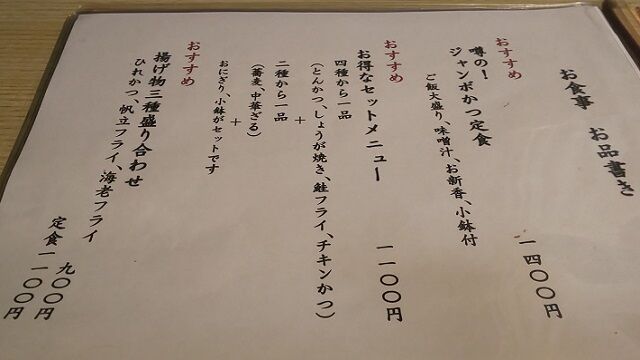 お食事　お品書き
おすすめ
噂の！
ジャンボかつ定食
ご飯大盛り、味噌汁、お新香、小鉢付
一四〇〇円
おすすめ
お得なセットメニュー
一一〇〇円
四種から一品
（とんかつ、しょうが焼き、鮭フライ、チキンかつ）
＋
二種から一品
（蕎麦、中華ざる）
＋
おにぎり、小鉢がセットです
おすすめ
揚げ物三種盛り合わせ
ひれかつ、帆立フライ、海老フライ
九〇〇円
定食一一〇〇円